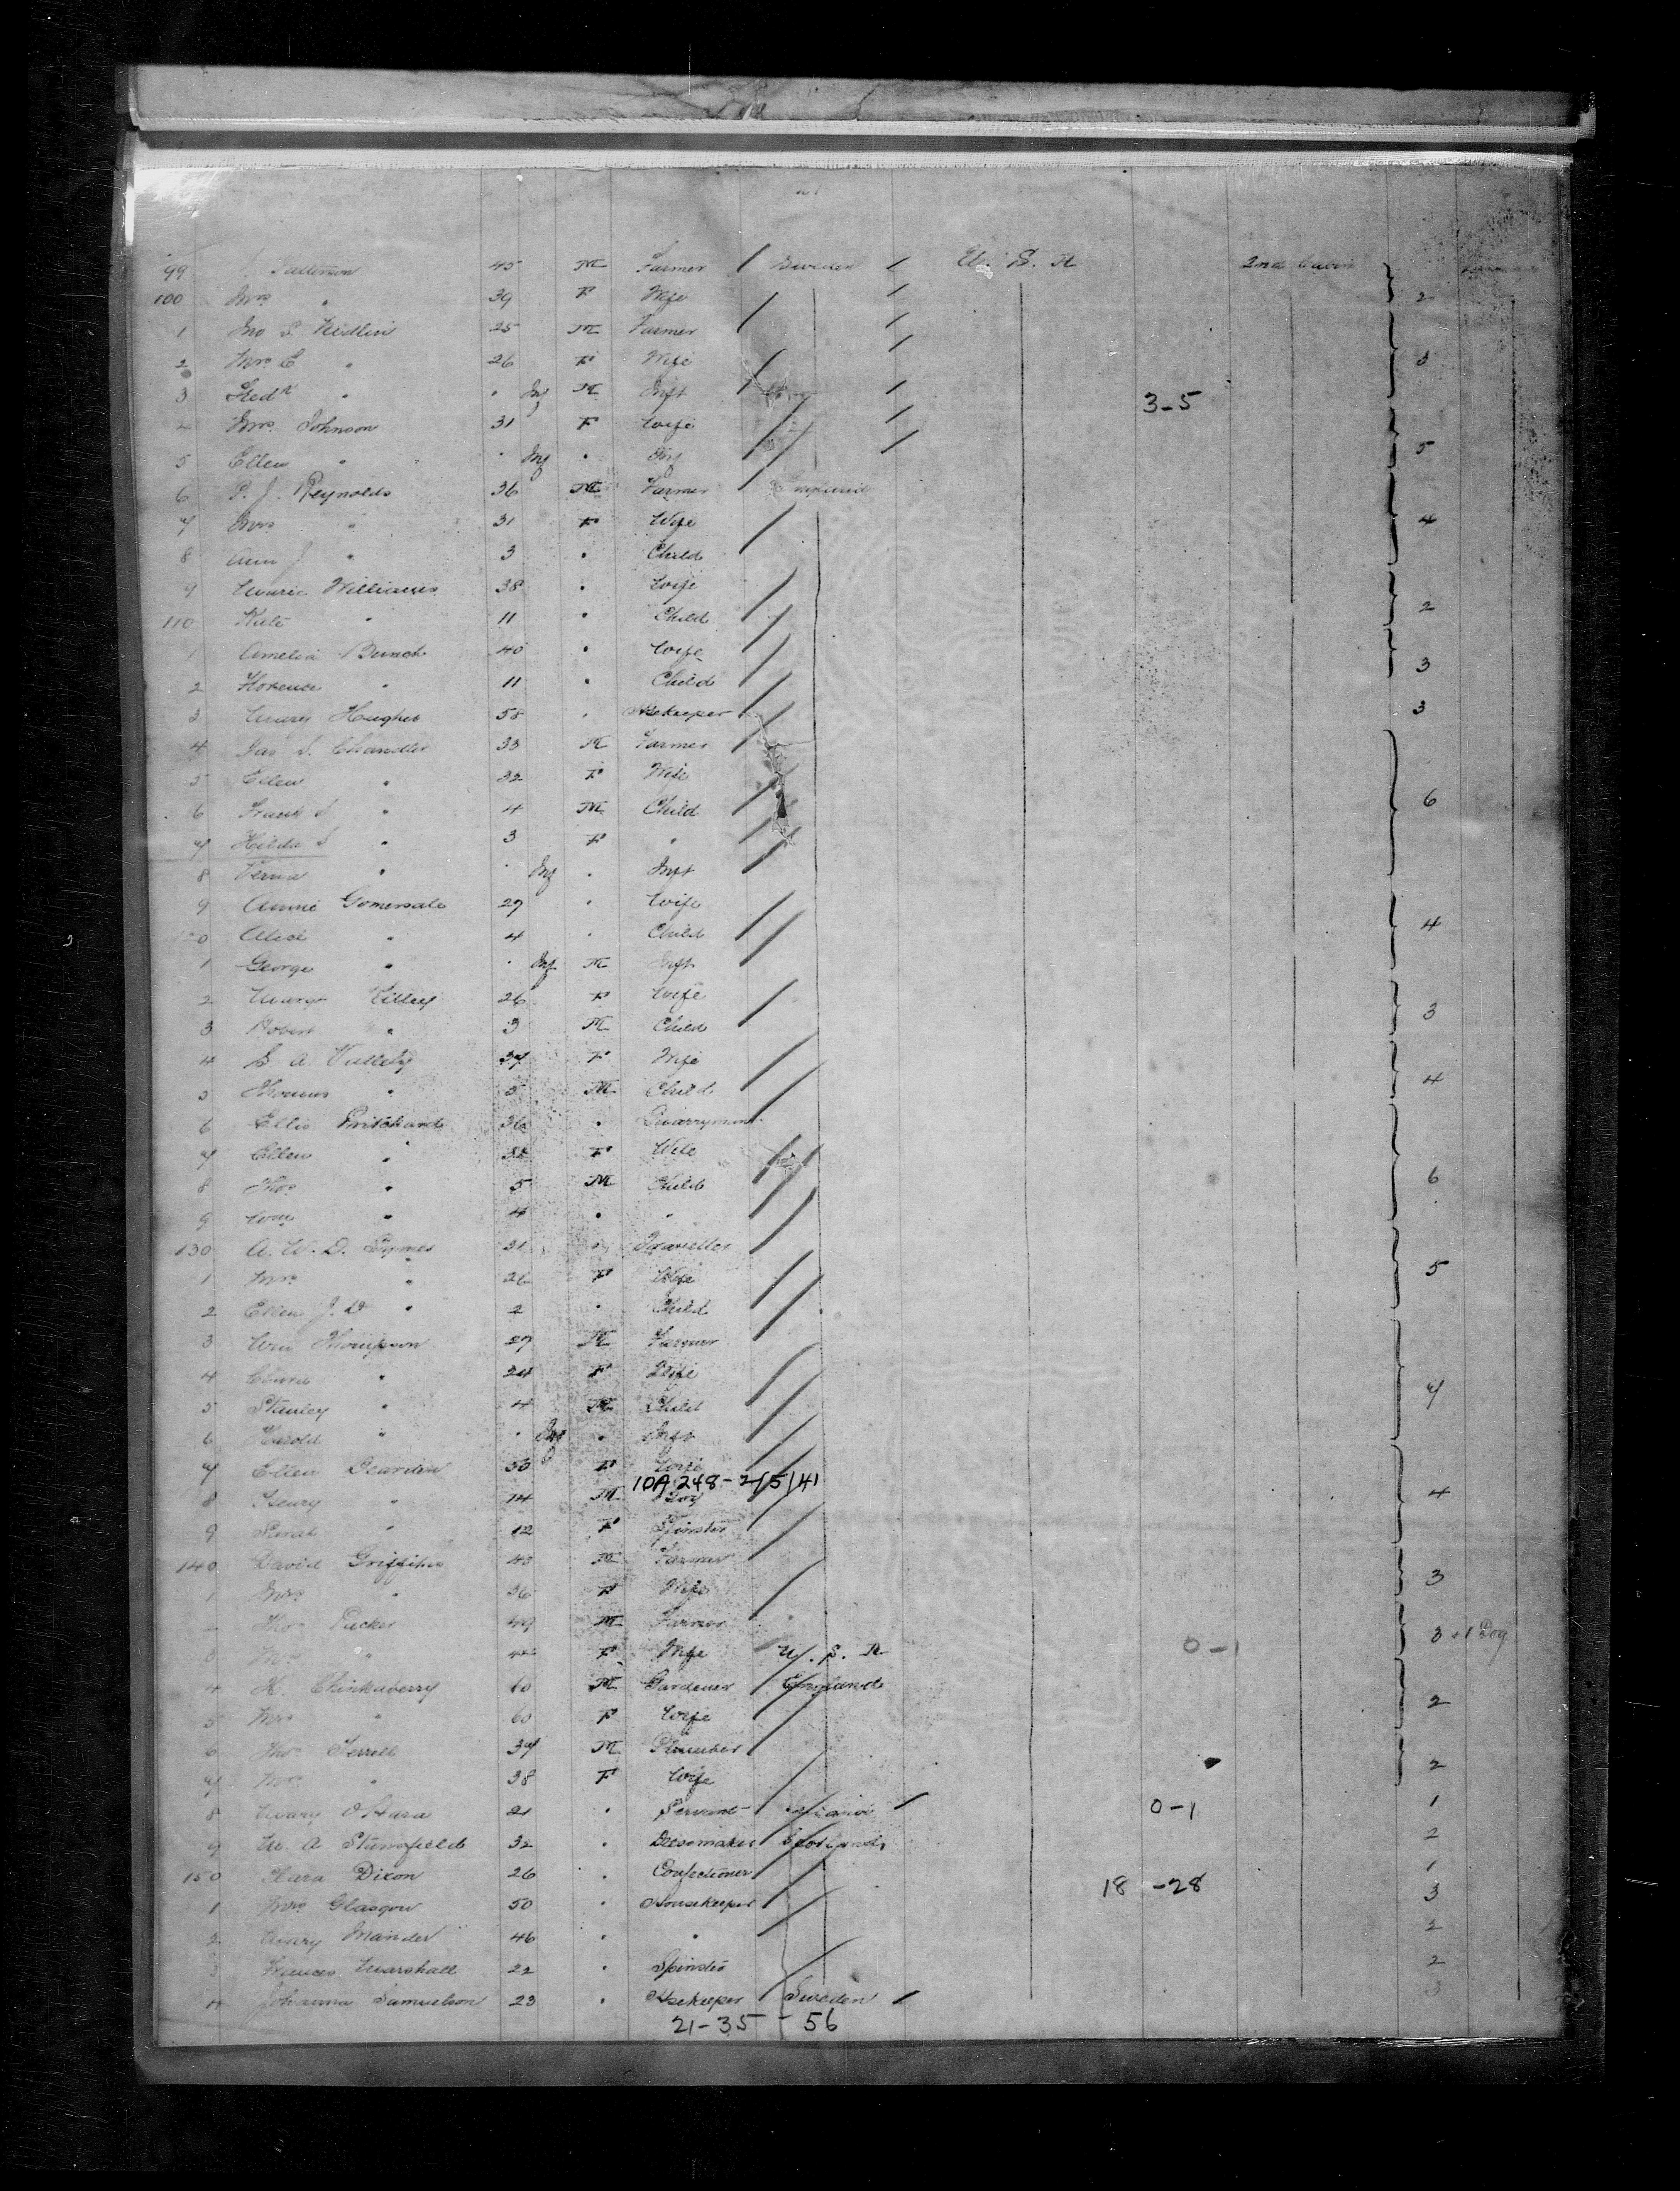 99 45 M Farmer Sweden U. S. A 2nd Cabin
100 Mrs " 39 F Wife 2
1 Jno 25 M Farmer
2 Mrs C " 26 F Wife 3
3 Fredk " " Inf M Inft 3-5
4 Mrs Johnson 31 F Wife
5 Ellen " " Inf " Inf 5
6 P. J. Reynolds 36 M Farmer England
7 Mrs " 31 F Wife 4
8 Ann J " 3 " Child
9 Marie Williams 38 " Wife
110 Kate " 11 " Child 2
1 Amelia Bunch 40 " Wife
2 Florence " 11 " Child 3
3 Mary Hughes 58 " Hsekeeper 3
4 Jas S. Chandler 33 M Farmer
5 Ellen " 32 F Wife
6 Frank S " 4 M Child 6
7 Hilda S " 3 F "
8 Verna " " Inf " Inft
9 Annie Gomersale 27 " Wife
120 Alice " 4 " Child 4
1 George " " Inf M Inft
2 Margt 26 F Wife
3 Robert " 3 M Child 3
4 37 F Wife
5 Thomas " 5 M Child 4
6 Ellis Pritchard 36 " Quarryman
7 Ellen " F Wife
8 Thos " 5 M Child 6
9 Wm " 4 " "
130 A. W. D. Symes 31 " Traveller
1 Mrs " 26 F Wife 5
2 Ellen J. D " 2 " Child
3 Wm Thompson 27 M Farmer
4 Clara " 24 F Wife
5 Stanley " 4 M Child 7
6 Harold " " Inf " Inft
7 Ellen Dearden 50 F Wife
10A 248-2/5/41
8 Henry " 14 M Boy 4
9 Sarah " 12 F Spinster
140 David Griffiths 43 M Farmer
1 Mrs " 36 F Wife 3
2 Thos Tucker 49 M Farmer
3 Mrs " F Wife U. S. A 0-1 3 +1 Dog
4 H. Chinkaberry 60 M Gardener England
5 Mrs " 60 F Wife 2
6 Thos Terrell 37 M Plumber
7 Mrs " 38 F Wife 2
8 Mary O'Hara 21 " Servant Ireland 0-1 1
9 M. A Stansfield 32 " Dressmaker Scotland 2
150 Clara Dixon 26 " Confectioner 18-28 1
1 Mrs Glasgow 50 " Housekeeper 3
2 Mary Mander 46 " " 2
3 Frances Marshall 22 " Spinster 2
4 Johanna Samuelson 23 " Hsekeeper Sweden 3
21-35-56